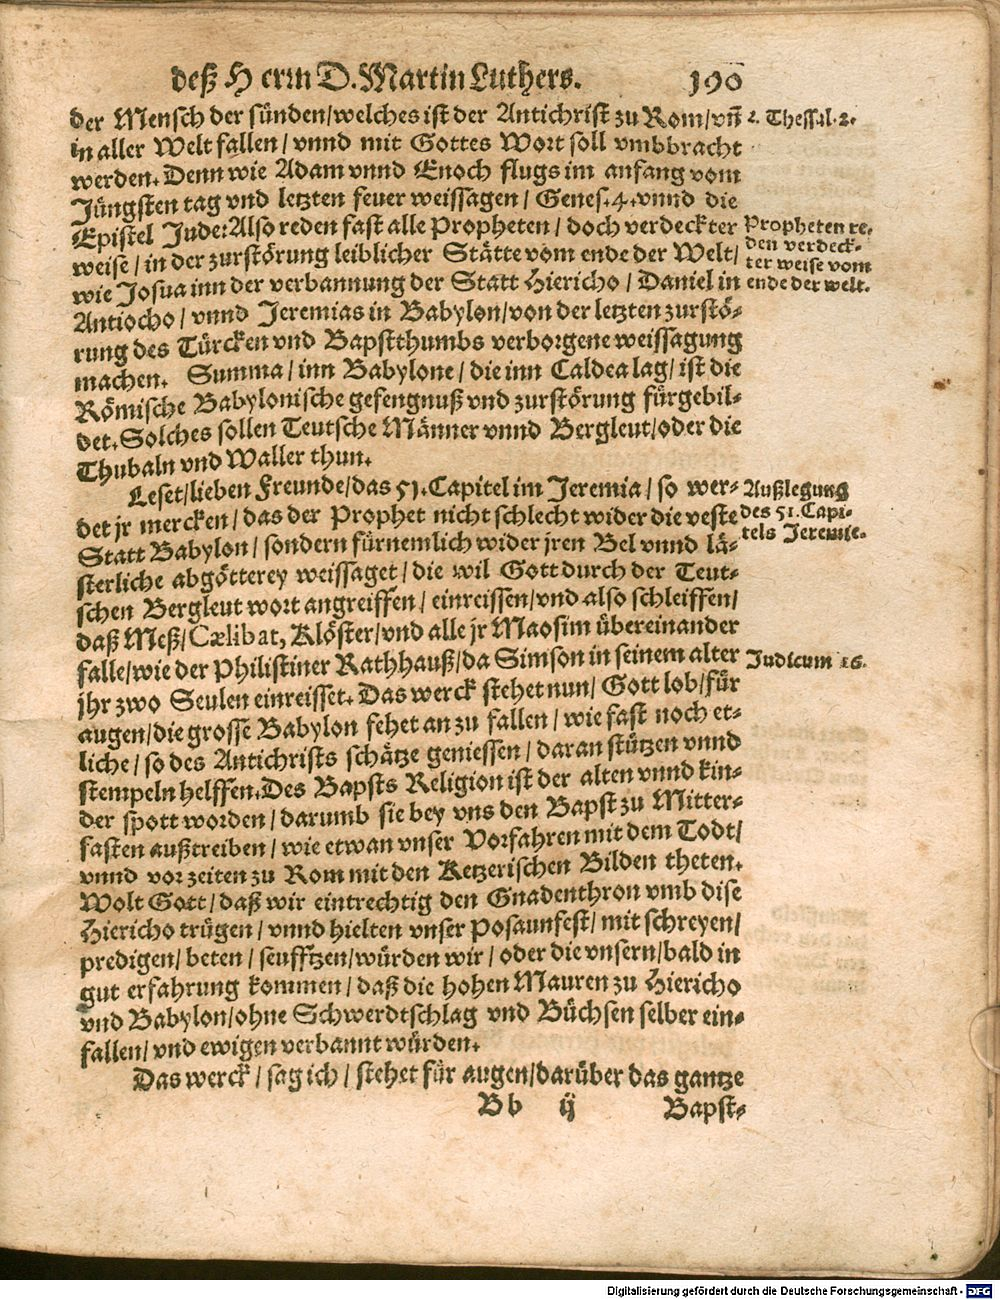 deß Herrn D. Martin Luthers. 190
der Mensch der sünden/welches ist der Antichrist zu Rom/vñ
in aller Welt fallen/vnnd mit Gottes Wort soll vmbbracht
werden. Denn wie Adam vnnd Enoch flugs im anfang vom
Jüngsten tag vnd letzten feuer weissagen/Genes.4.vnnd die
Epistel Jude: Also reden fast alle Propheten/doch verdeckter
weise/in der zurstörung leiblicher Stätte vom ende der Welt/
wie Josua inn der verbannung der Statt Hiericho/Daniel in
Antiocho/vnnd Jeremias in Babylon/von der letzten zurstö-
rung des Türcken vnd Bapstthumbs verborgene weissagung
machen. Summa/inn Babylone/die inn Caldea lag/ist die
Römische Babylonische gefengnuß vnd zurstörung fürgebil-
det. Solches sollen Teutsche Männer vnnd Bergleut/oder die
Thubaln vnd Waller thun.
Leset/lieben Freunde/das 51.Capitel im Jeremia/so wer-
det jr mercken/das der Prophet nicht schlecht wider die veste
Statt Babylon/sondern fürnemlich wider jren Bel vnnd lä-
sterliche abgötterey weissaget/die wil Gott durch der Teut-
schen Bergleut wort angreiffen/einreissen/vnd also schleiffen/
daß Meß/Cælibat, Klöster/vnd alle jr Maosim übereinander
falle/wie der Philistiner Rathhauß/da Simson in seinem alter
jhr zwo Seulen einreisset. Das werck stehet nun/Gott lob/für
augen/die grosse Babylon fehet an zu fallen/wie fast noch et-
liche/so des Antichrists schätze geniessen/daran stützen vnnd
stempeln helffen. Des Bapsts Religion ist der alten vnnd kin-
der spott worden/darumb sie bey vns den Bapst zu Mitter-
fasten außtreiben/wie etwan vnser Vorfahren mit dem Todt/
vnnd vor zeiten zu Rom mit den Ketzerischen Bilden theten.
Wolt Gott/daß wir eintrechtig den Gnadenthron vmb dise
Hiericho trügen/vnnd hielten vnser Posaunfest/mit schreyen/
predigen/beten/seufftzen/würden wir/oder die vnsern/bald in
gut erfahrung kommen/daß die hohen Mauren zu Hiericho
vnd Babylon/ohne Schwerdtschlag vnd Büchsen selber ein-
fallen/vnd ewigen verbannt würden.
Das werck/sag ich/stehet für augen/darüber das gantze
Bb ij Bapst-
2. Thessal. 2.
Propheten re-
den verdeck-
ter weise vom
ende der welt.
Außlegung
des 51. Capi-
tels Jeremie.
Judicum 16.
Digitalisierung gefördert durch die Deutsche Forschungsgemeinschaft - DFG